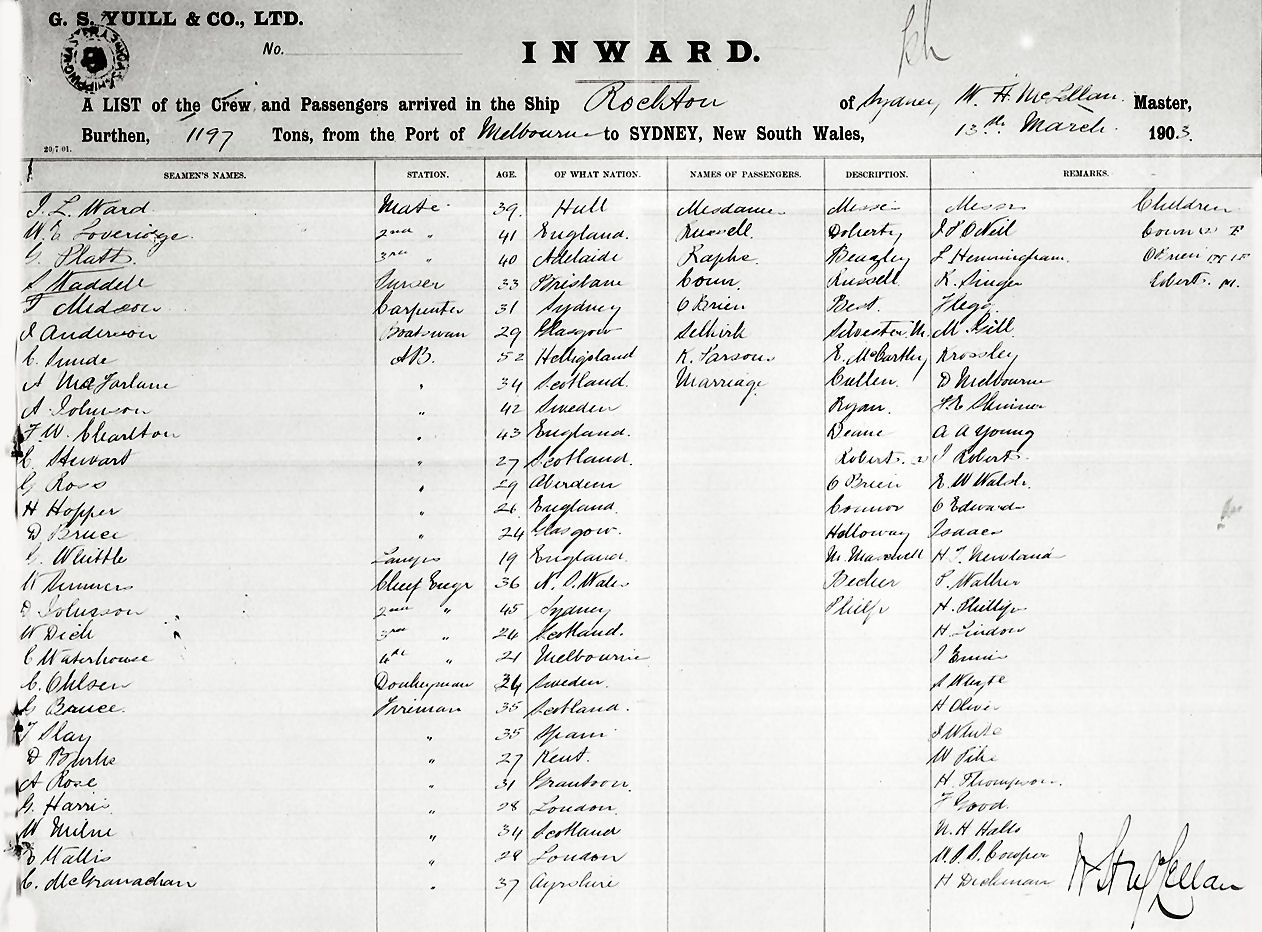 G. S. YUILL & CO., LTD.
No.
INWARD.
A LIST of the Crew and Passengers arrived in the Ship Rockton of Sydney W. H. McLellan Master,
Burthen, 1197 Tons, from the Port of Melbourne to SYDNEY, New South Wales, 13th March. 1903.
20/7 01.
SEAMEN'S NAMES. STATION. AGE. OF WHAT NATION. NAMES OF PASSENGERS. DESCRIPTION. REMARKS.
Ward Mate 39. Hull Mesdames Misses Messrs Children
W. E. Loveridge. 2nd " 41 England. Russell. Doherty O'Neil
G. Platt. 3rd " 40 Adelaide Raphs. Beazley Henningham. O'Brien
Waddell Purser 33 Brisbane Conn. Russell. K. Singer Robert. M.
Carpenter 31 Sydney O'Brien Best. Flegg.
J Anderson Boatswan 29 Glasgow Selkirk Silvester. M. M. Gill
AB. 52 Heligoland K. Parsons E. McCarthy Krossley
A McFarlane " 34 Scotland. Marriage Cullen. D Melbourne
A Johnson " 42 Sweden Ryan. Skinner
F. W. Charlton " 43 England. Deane A A Young
C. Stewart " 27 Scotland. Roberts. 2 J Roberts
G Ross " 29 Aberdeen O'Brien E. W Walsh.
H Hopper " 26 England. Connor C Edwards
D Bruce " 24 Glasgow. Holloway Isaacs
G. Whittle 19 England. M. Maxwell H. J. Newland
Chief Engr 36 N. S. Wales Becher Walker
D Johnson 2nd " 45 Sydney Philp H. Phillips
W Dick 3rd " 24 Scotland. H. Lindon
C Waterhouse 4th " 21 Melbourne
C. Ohlsen Donkeyman 34 Sweden. Whyte
G Bruce. Fireman 35 Scotland. H Oliver
" 35 Spain J White
D Burke " 27 Kent. W Pike
A Rose " 31 H. Thompson.
G. Harris " 28 London. F Good.
W Milne " 34 Scotland H Halls
Wallis " 28 London Cowper
C. McGranachan " 37 Ayrshire H Dickman
W H McLellan